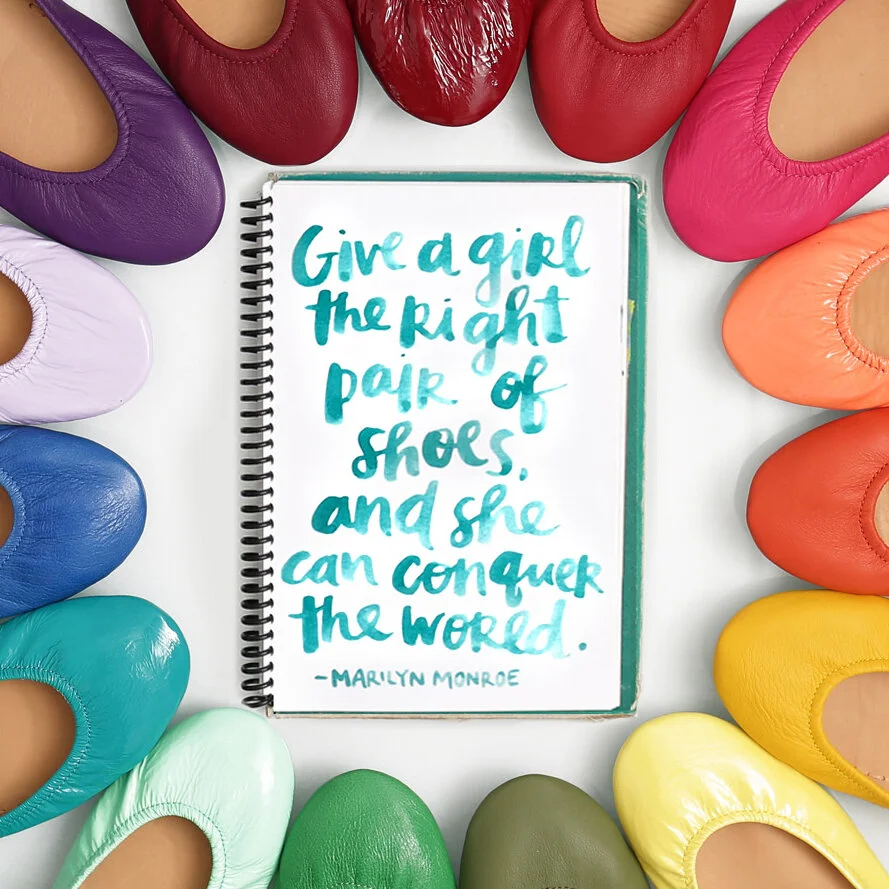 Give a girl
the right
pair of
shoes,
and she
can conquer
the world.
-MARILYN MONROE